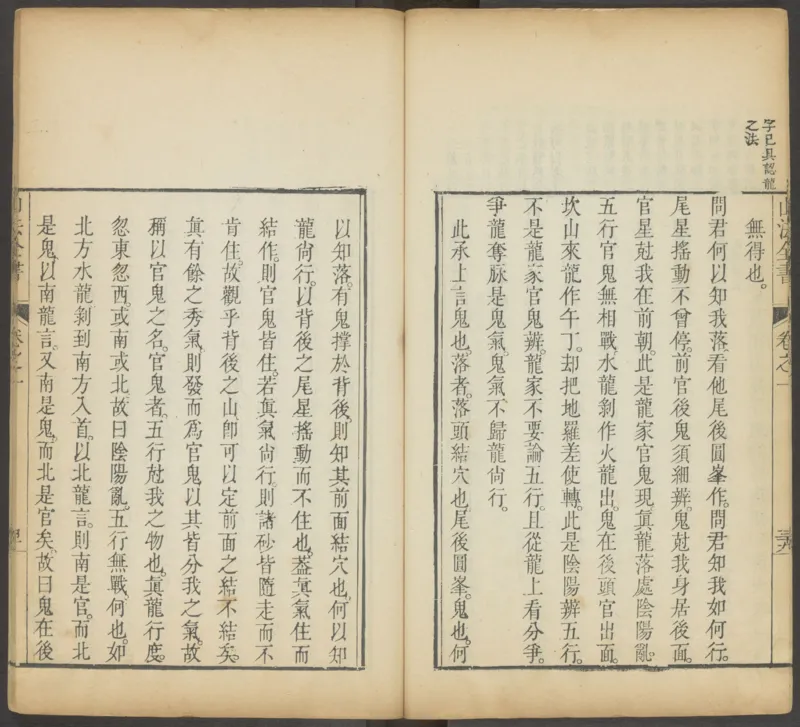 字已具認龍
之法
無得也。
問君何以知我落。看他尾後圓峯作。問君知我如何行。
尾星搖動不曾停。前官後鬼須細辨。鬼尅我身居後面。
官星尅我在前朝。此是龍家官鬼現。眞龍落處陰陽亂。
五行官鬼無相戰。水龍剝作火龍出。鬼在後頭官出面。
坎山來龍作午丁。却把地羅差使轉。此是陰陽辨五行。
不是龍家官鬼辨。龍家不要論五行。且從龍上看分爭。
爭龍奪脉是鬼氣。鬼氣不歸龍尙行。
此承上言鬼也。落者。落頭結穴也。尾後圓峯。鬼也。何
山法全書
卷之一
以知落。有鬼撑於背後。則知其前面結穴也。何以知
龍尙行。以背後之尾星搖動而不住也。葢眞氣住而
結作。則官鬼皆住。若眞氣尙行。則諸砂皆隨走而不
肯住。故觀乎背後之山。卽可以定前面之結不結矣。
眞有餘之秀氣。則發而爲官鬼。以其皆分我之氣。故
稱以官鬼之名。官鬼者。五行尅我之物也。眞龍行度。
忽東忽西。或南或北。故曰陰陽亂。五行無戰。何也。如
北方水龍剝到南方入首。以北龍言。則南是官。而北
是鬼。以南龍言。又南是鬼。而北是官矣。故曰鬼在後
卷之一